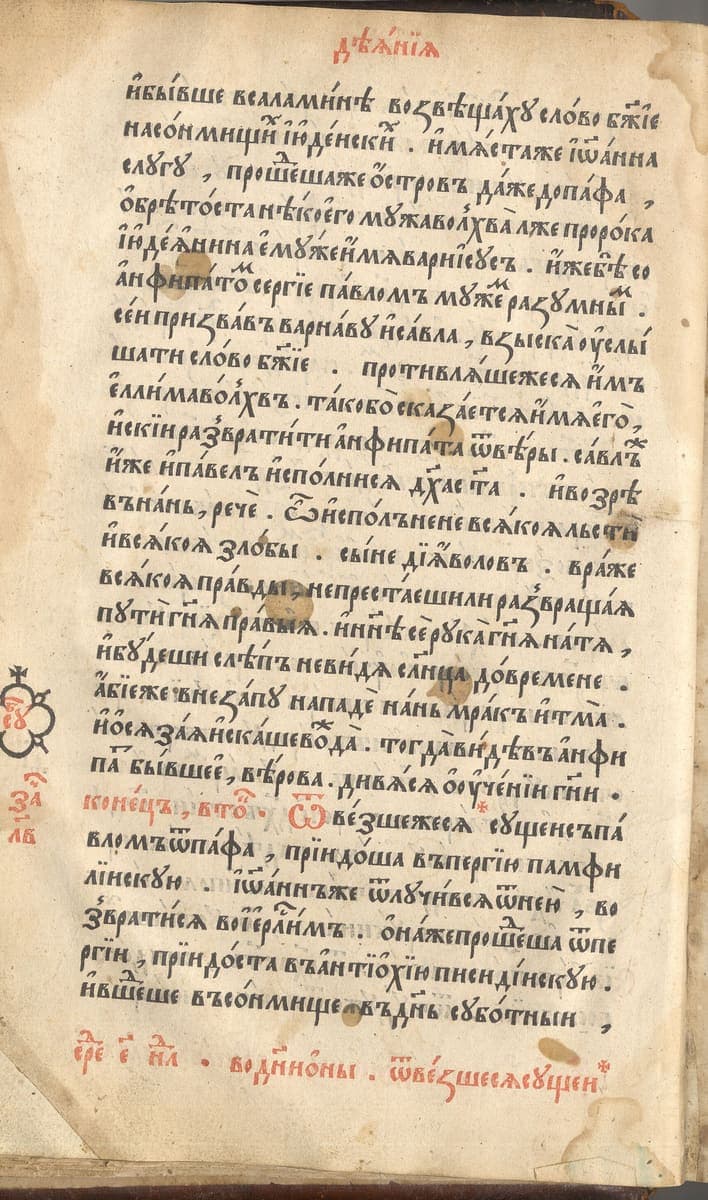 дѣѧ́нїѧ
и҆бы́вше всалами́нѣ возвѣща́хꙋ сло́во бж҃їе
насо́нмищи́х і҆ꙋде́нски́х . и҆мѧ́стаже і҆ѡ҆а́нна
слꙋгꙋ , проше́дшаже ѻ҆́стровъ да́же допа́фа ,
ѡ҆брѣто́ста нѣ́коего мꙋ́жа волхва̀ лже проро́ка
і҆ꙋде́ѧнина е҆мꙋ́же и҆́мѧ вариі҆сꙋсъ . и҆́же бѣ̀ со
а҆нфипа́том сергїе па́вломъ мꙋ́жем разꙋмны́м .
се́и призва́въ варна́вꙋ и҆са́вла , взыска̀ ꙋ҆слы́
шати сло́во бж҃їе . противлѧ́шежесѧ и҆́мъ
е҆ллима во́лхвъ . та́кобо сказа́етсѧ и҆́мѧ е҆го̀ ,
и҆скїи развратити а҆нфипа́та ѿвѣ́ры . са́влъж
и҆́же и҆па́велъ и҆спо́лнисѧ дх҃а ст҃а . и҆возрѣ́
въна́нь , речѐ . Ѽ и҆спо́лънене всѧ́коѧ льсти
и҆всѧ́коѧ зло́бы . сы́не дїѧ́волѡвъ . вра́же
всѧ́коѧ пра́вды , непреста́еши ли развраща́ѧ
пꙋтѝ гн҃ѧ пра́выѧ . и҆нн҃ѣ сѐ рꙋка̀ гн҃ѧ на́тѧ ,
и҆бꙋ́деши слѣ́пъ неви́дѧ сл҃нца до́времене .
а҆́бїеже внеза́пꙋ нападѐ на́нь мра́къ и҆тма̀ .
и҆ѡ҆сѧза́ѧ и҆ска́ше вожда̀ . тогда̀ ви́дѣвъ а҆нфи
па́т бы́вшее , вѣ́рова . дивѧ́сѧ ѡ҆ ꙋ҆че́нїи гн҃и .
еꙋ
за҃
лв
коне́цъ , вто́р . Ѿве́зшежесѧ сꙋщен съпа́
вломъ ѿпа́фа , прїидо́ша въпергїю памфи
лїискꙋю . і҆ѡ҆а́ннъже ѿлꙋчи́всѧ ѿнею̀ , во
зврати́сѧ воі҆ерⷭ҇ли́мъ . ѻ҆на́же проше́дша ѿпе
ргїи , прїидо́ста въантїо́хїю писиді́искꙋю .
и҆вше́дше въсо́нмище въдн҃ь сꙋбо́тныи ,
ере е҃ нл . водн҃и ѻ҆ны . ѿве́зшесѧ сꙋщеи